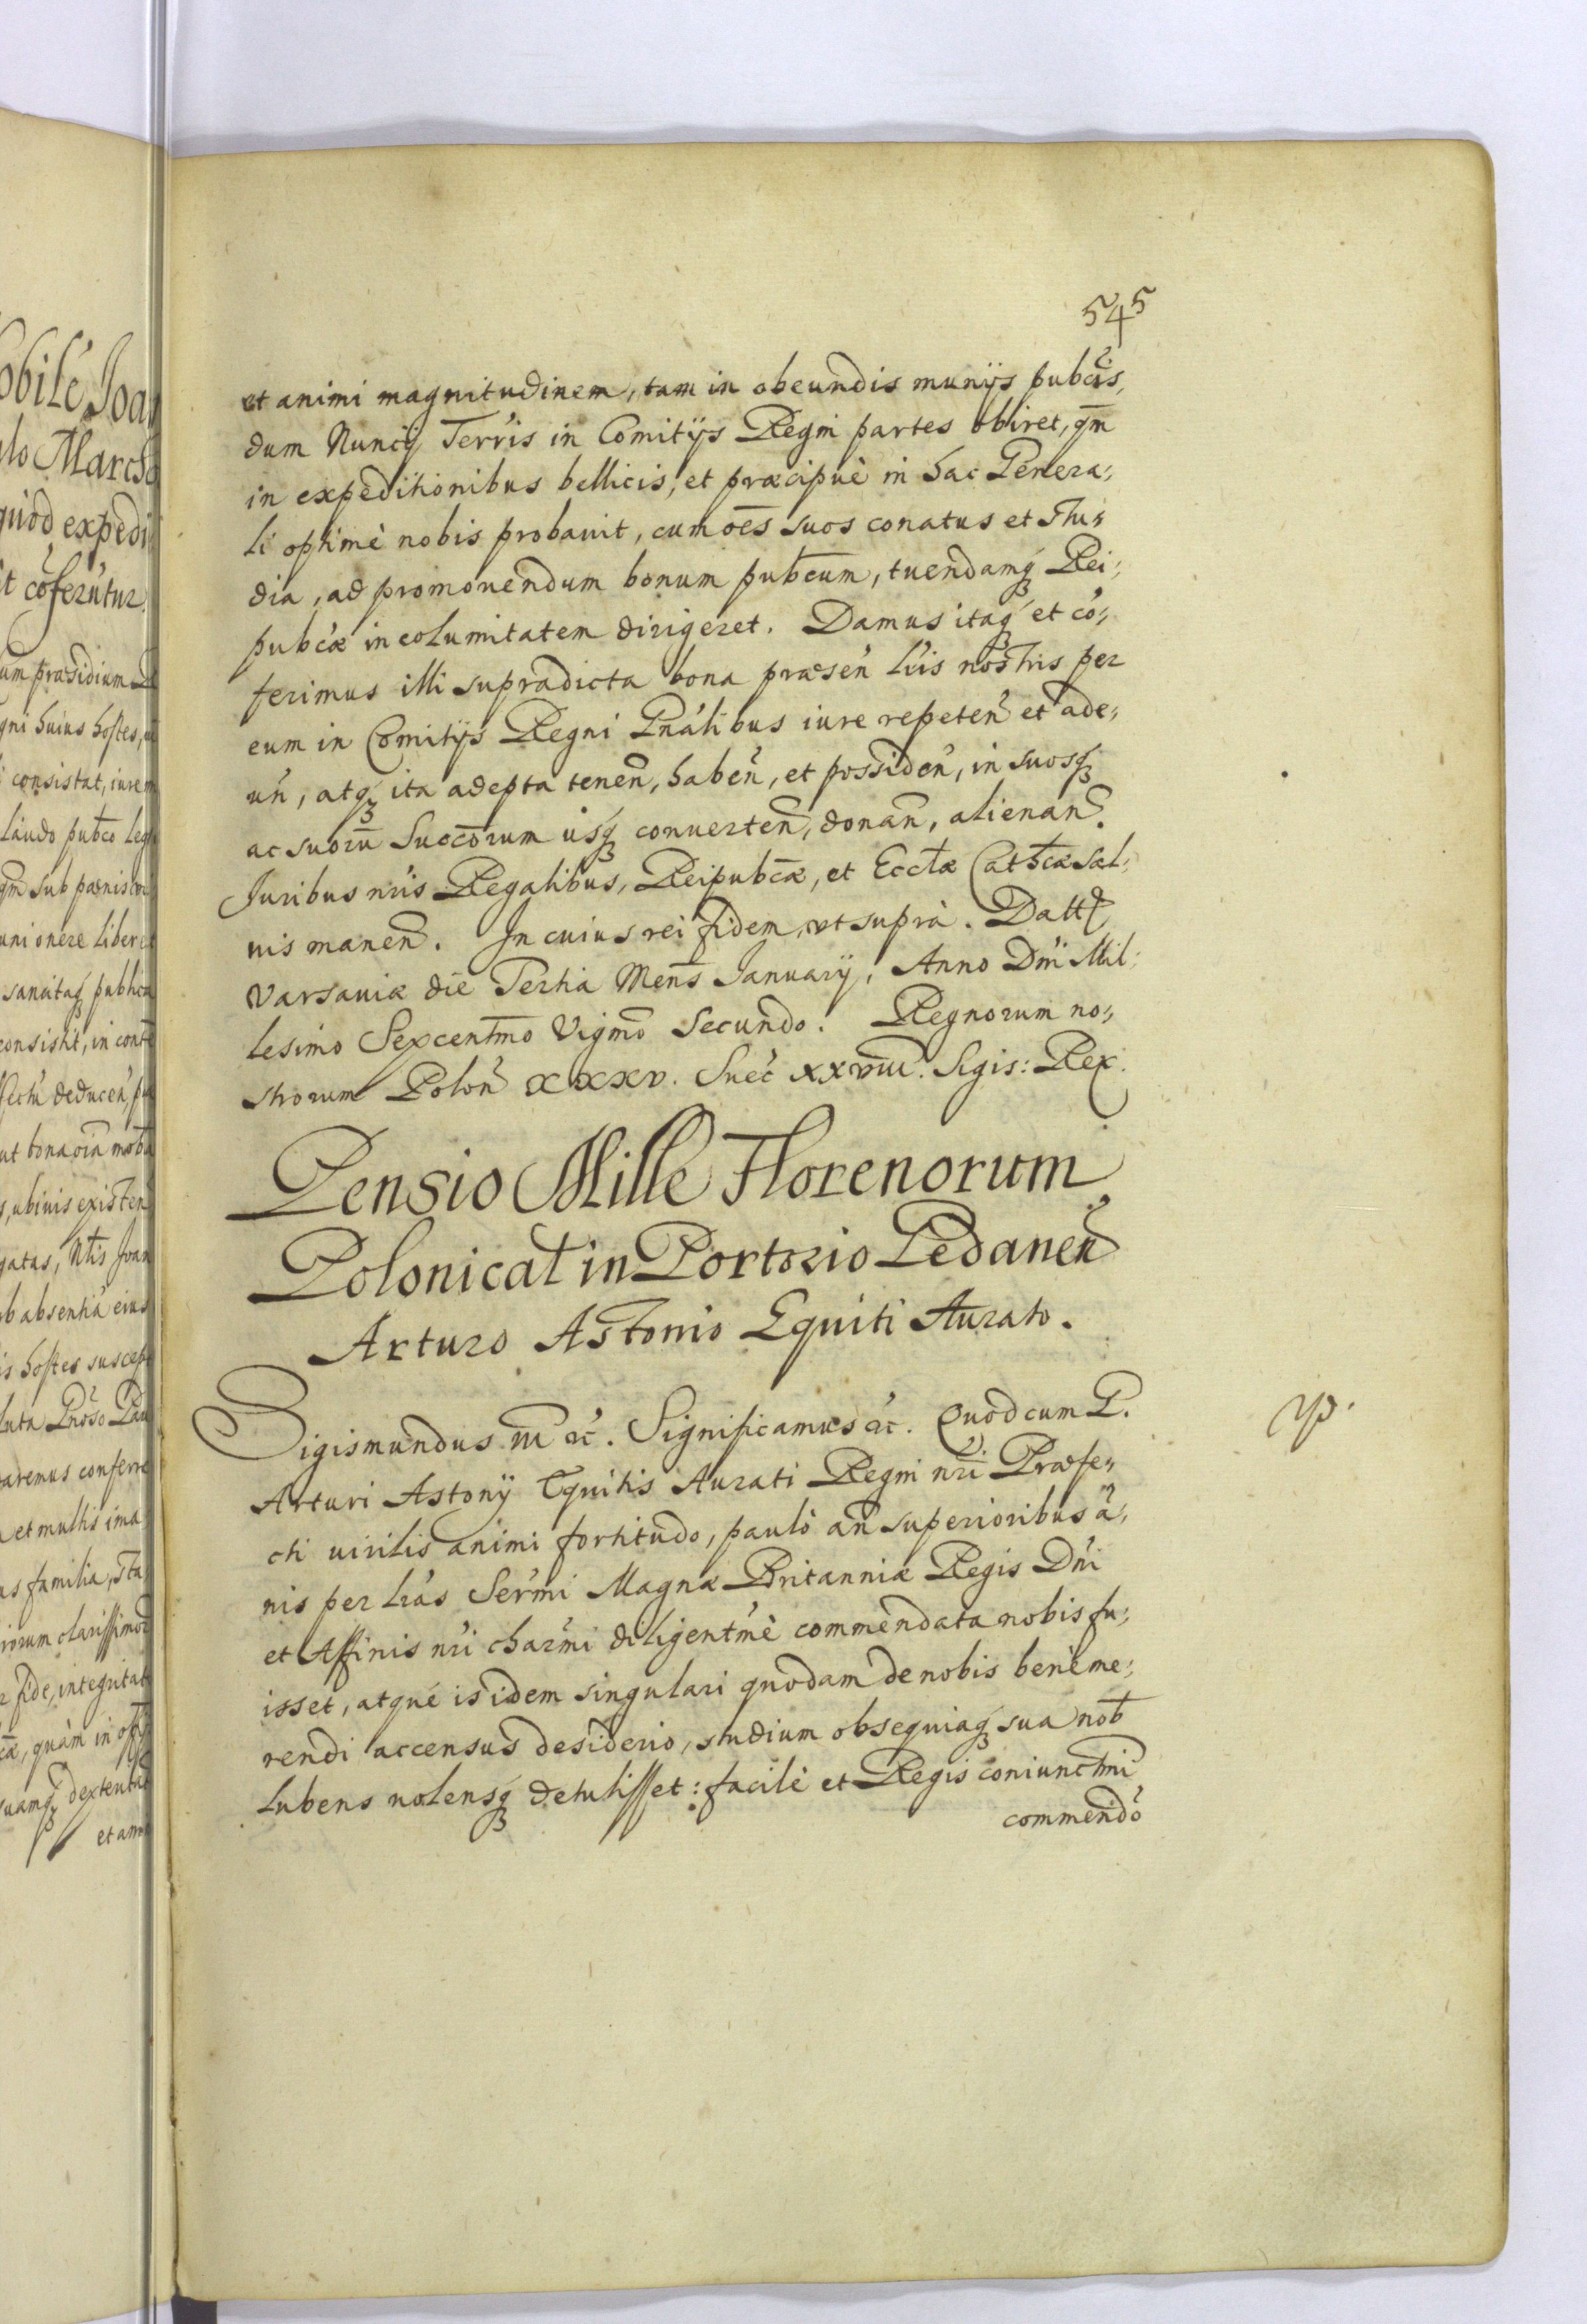 545
et animi magnitudinem, tam in obeundis munijs pubcis,
dum Nuncij Terris in Comitijs Regni partes obiret, qm
in expeditionibus bellicis, et præcipuè in hac Genera,
li optimè nobis probauit, cum oēs suos conatus et stu,
dia, ad promouendum bonum pubcum, tuendamq Rei,
pubcæ incolumitatem dirigeret. Damus itaq et cō,
ferimus illi supradicta bona præsen lris nostris per
eum in Comitijs Regni Gnālibus iure repeten et ade,
un, atq ita adepta tenen, haben, et possiden, in suosq
ac suorū Succorum usq conuerten, donan, alienan.
Juribus nris Regalibus, Reipubcæ, et Ecctæ Cathcæ sal,
uis manen. In cuius rei fidem, vt suprà. Datt
Varsauiæ die Tertia Mens January, Anno Dni Mil,
lesimo Sexcentmo Vigmo Secundo. Regnorum no,
strorum Polon XXXV. Suec XXVIII. Sigis: Rex.
Pensio Mille Florenorum
Polonical in Portorio Gedanen
Arturo Astonio Equiti Aurato.
Sigismundus III &c. Significamus &c. Quod cum G.
Arturi Astonij Equitis Aurati Regni nri Præfe,
cti uirilis animi fortitudo, paulò an superioribus ā,
nis per lras Sermi Magnæ Britanniæ Regis Dni
et Affinis nri charmi diligentmè commendata nobis fu,
isset, atque is idem singulari quodam de nobis benè me,
rendi accensus desiderio, studium obsequiaq sua nob
lubens uolensq detulisset: facilè et Regis coniunctmi
commendō
obile Joa
lo March
quod expedi
it cōferūtur
um præsidium
gni huius hostes,
consistat, iure
Laudo pubco leg
qm sub pænis
uni onere liber
sancitaq publica
consistit, in cont
deducen,
ut bona oia mob
s, ubiuis existen
gatas, Ntis Joan
ob absentiā eius
is hostes suscep
luta Gnoso Pau
daremus conferre
et multis ima
us familia, sta
iorum clarissimor
fide, integritat
cæ, quàm in
suamq dexterita
et ani